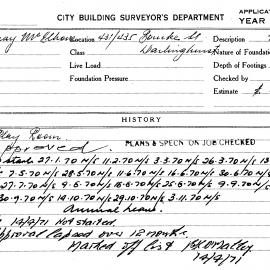 CITY BUILDING SURVEYOR'S DEPARTMENT
APPLICATIO
YEAR
Location 431/435 Bourke St
Description
Class Darlinghurst
Nature of Foundation
Live Load
Depth of Footings
Foundation Pressure
Checked by
Estimate £
HISTORY
Play Room
Approved. PLANS & SPECN ON JOB CHECKED
27.1.70 N/S 11.2.70 N/S 3.3.70 N/S 26.3.70 N/S 13
7.5.70 N/S 28.5.70 N/S 11.6.70 N/S 16.6.70 N/S 30.6.70 N/S
27.7.70 N/S 9.8.70 N/S 25.8.70 N/S 9.9.70 N/S
30.9.70 N/S 14.10.70 N/S 29.10.70 N/S 3.11.70 N/S
Annual Leave.
12/2/71 Not started
Approval lapsed over 12 months.
Marked off list
12/2/71